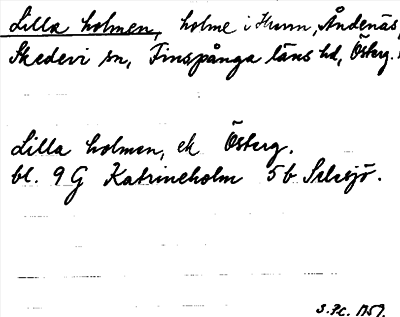 Lilla holmen, holme i Hunn, Åndenäs,
Skedevi sn, Finspånga läns hd, Österg.
Lilla holmen, ek Österg.
bl. 9 G Katrineholm 5 b Selesjö.